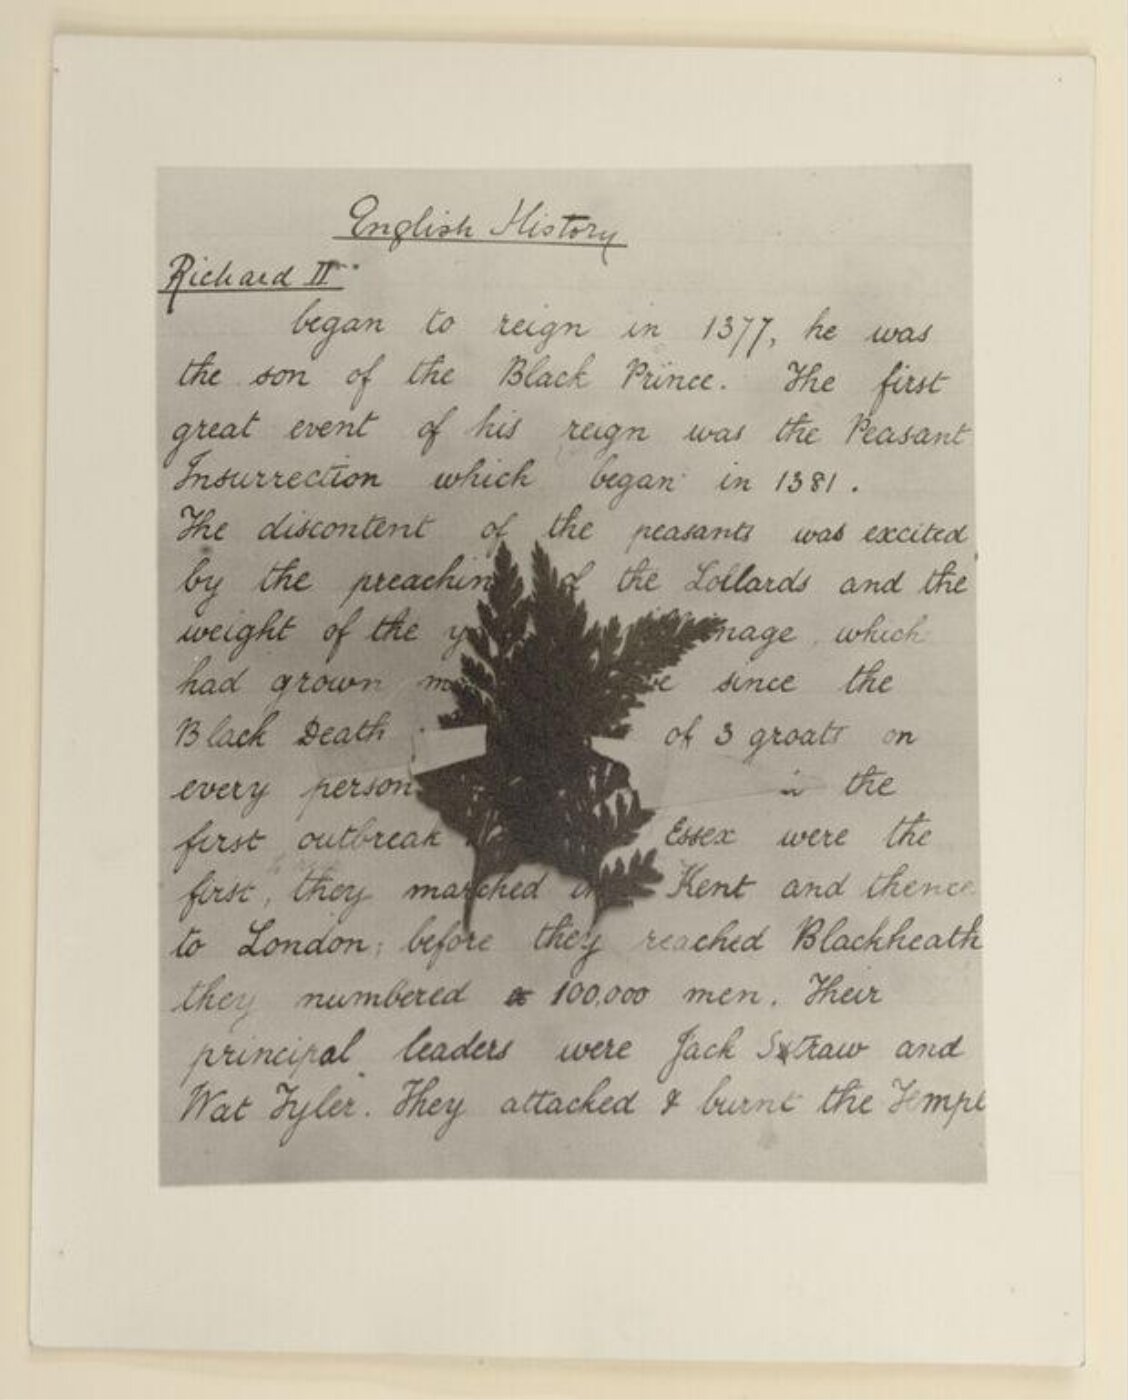 English History
Richard II
began to reign in 1377, he was
the son of the Black Prince. The first
great event of his reign was the Peasant
Insurrection which began in 1381.
The discontent of the peasants was excited
by the preachin of the Lollards and the
weight of the which
had grown since the
Black Death of 3 groats on
every person in the
first outbreak Essex were the
first, they marched Kent and thence
to London; before they reached Blackheath
they numbered 100,000 men. Their
principal leaders were Jack Straw and
Wat Tyler. They attacked & burnt the Templ